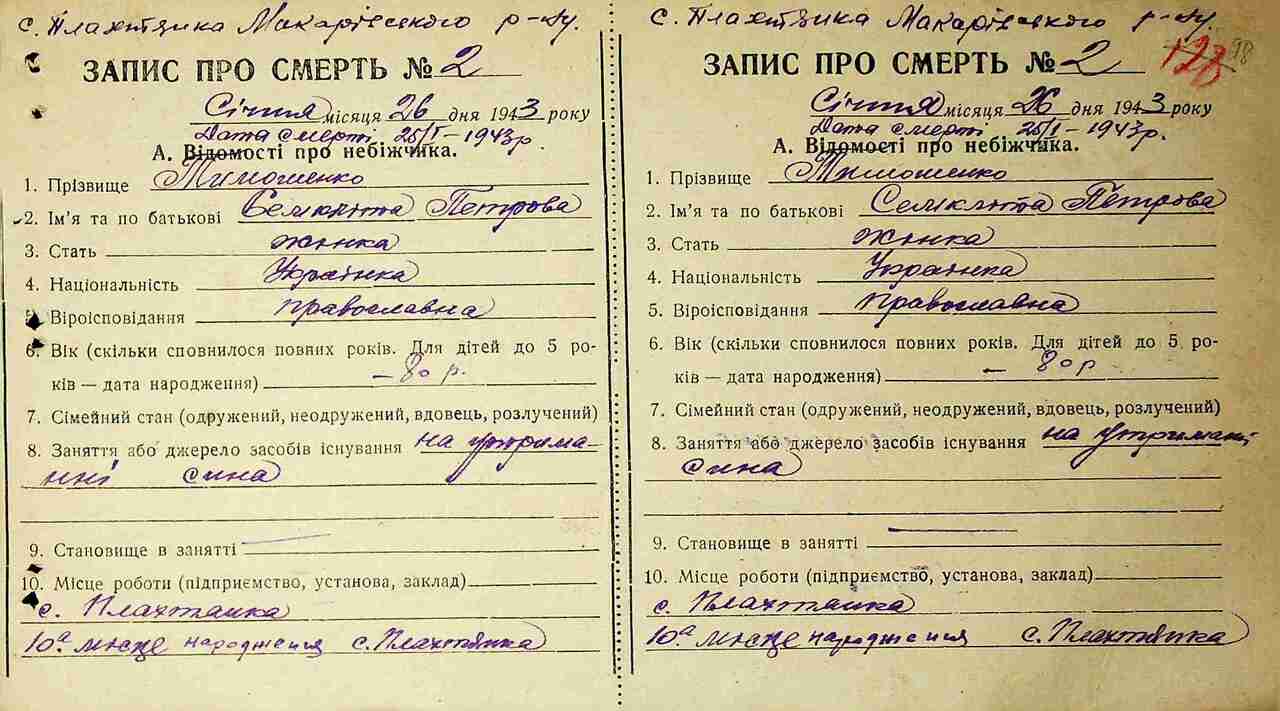 с. Плахтянка Макарівського р-ну.
ЗАПИС ПРО СМЕРТЬ № 2
Січня місяця 26 дня 1943 року
Дата смерті 25/I-1943р.
А. Відомості про небіжчика.
1. Прізвище Тимошенко
2. Ім'я та по батькові Семклита Петрова
3. Стать жінка
4. Національність Українка
5. Віроісповідання православна
6. Вік (скільки сповнилося повних років. Для дітей до 5 ро-
ків — дата народження) – 80 р.
7. Сімейний стан (одружений, неодружений, вдовець, розлучений)
8. Заняття або джерело засобів існування на утрима-
нні сина
9. Становище в занятті
10. Місце роботи (підприємство, установа, заклад)
с. Плахтянка
10а місце народження с. Плахтянка
с. Плахтянка Макарівського р-ну.
128 98
ЗАПИС ПРО СМЕРТЬ № 2
Січня місяця 26 дня 1943 року
Дата смерті 25/I-1943р.
А. Відомості про небіжчика.
1. Прізвище Тимошенко
2. Ім'я та по батькові Семклита Петрова
3. Стать жінка
4. Національність Українка
5. Віроісповідання православна
6. Вік (скільки сповнилося повних років. Для дітей до 5 ро-
ків — дата народження) – 80 р
7. Сімейний стан (одружений, неодружений, вдовець, розлучений)
8. Заняття або джерело засобів існування на утриманні
сина
9. Становище в занятті
10. Місце роботи (підприємство, установа, заклад)
с. Плахтянка
10а місце народження с. Плахтянка